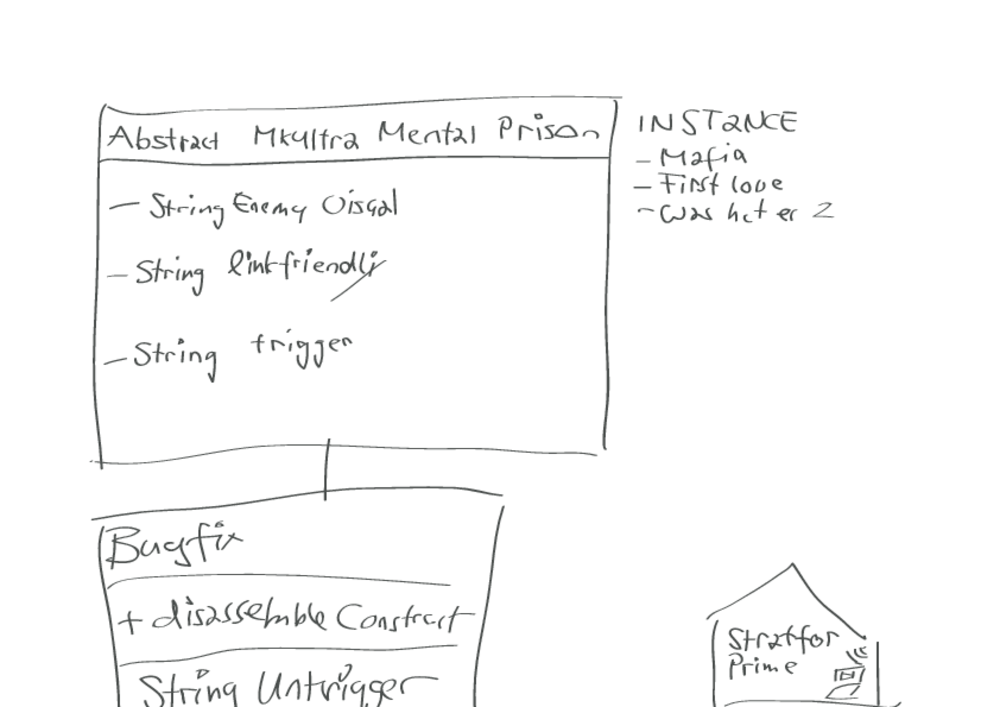 Abstract Mkultra Mental Prison
- String Enemy Visual
- String linkfriendly
- String trigger
INSTANCE
- Mafia
- First love
- Was hater 2
Bugfix
+ disassemble Construct
String Untrigger
Stratfor
Prime